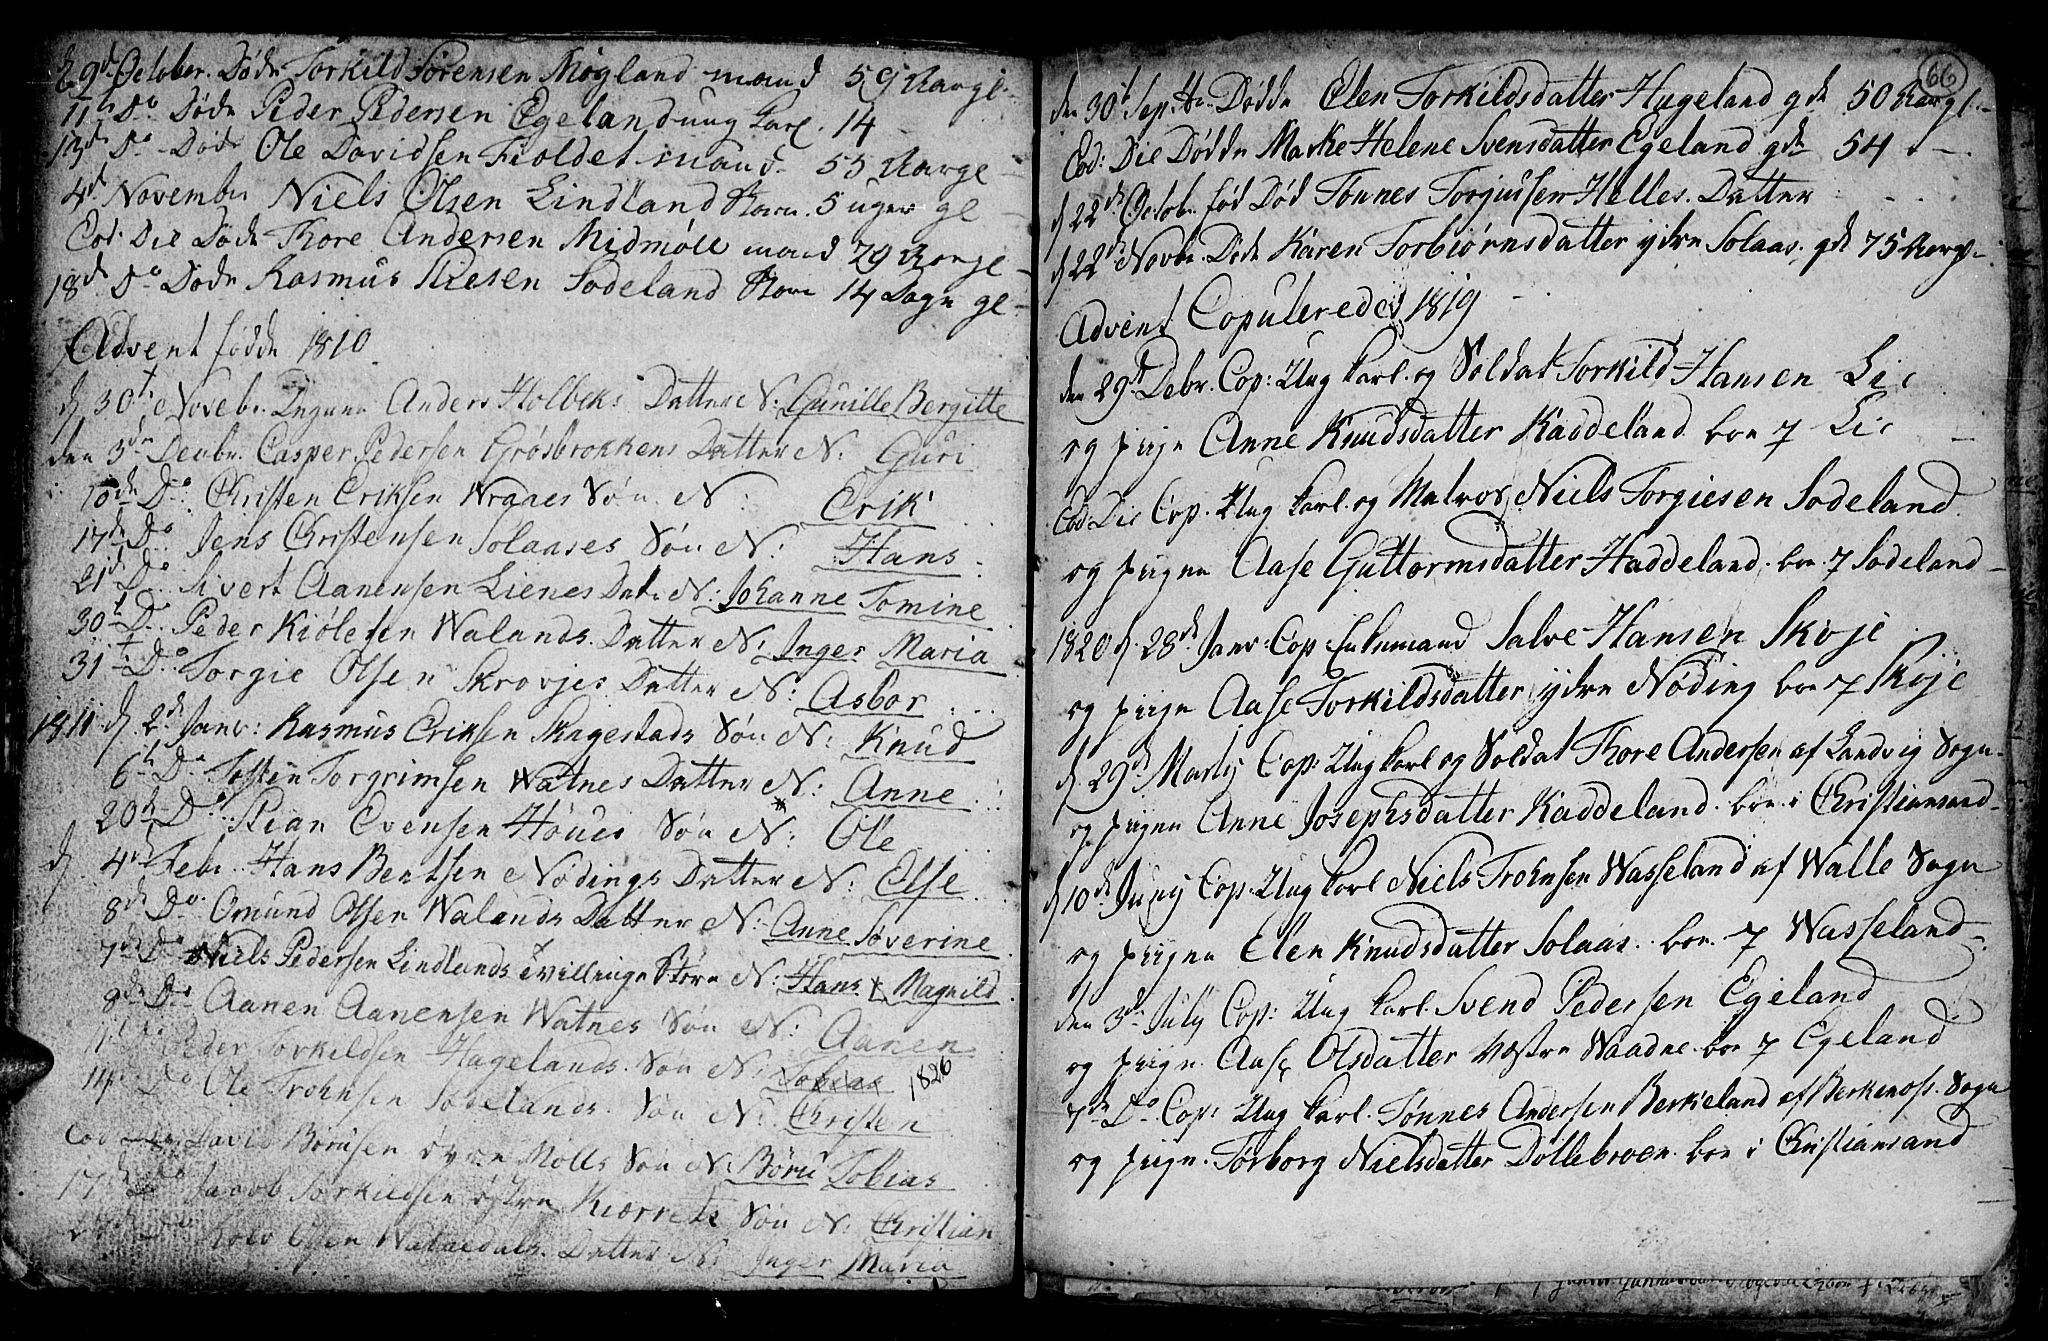 d 9d October. Døde Torkild Sørensen Møgland mand 59 Aar gl.
11th Do Døde Peder Pedersen Egeland ung karl. 14 —
13de Do Døde Ole Davidsen Fioldet mand. 55 Aar gl —
4d November Niels Olsen Lindland Barn. 5 uger gl —
Eod. Die Døde Thore Andersen Midmøll mand 79 Aar gl —
18de Do Døde Rasmus Olesen Sodeland Barn 14 Dage gl —
Advent fødde 1810
d 30t Novebr. Anders Holbeks Datter N: Gunille Bergitte
den 3de Decbr. Casper Pedersen Grøsbrokkens Datter N: Guri
10de Do. Christen Eriksen Wraaes Søn N: Erik
17de Do. Jens Christensen Solaases Søn N: Hans
21d Do. Sivert Aanensen Lienes Dat. N: Johanne Tomine
30t Do. Peder Kiølesen Walands Datter N: Inger Maria
31t Do. Torgie Olsen Skrovjes Datter N: Asbor
1811 d. 2d Janv: Rasmus Eriksen Skagestads Søn N: Knud
6th Do Tosten Torgrimsen Watnes Datter N: Anne
20th Do. Stian Evensen Høues Søn N: Ole
d. 4d Febr. Hans Bentsen Nødings Datter N: Else
8de Do. Omund Olsen Walands Datter N: Anne Søverine
7de Do Niels Pedersen Lindlands tvillinge Børn N: Hans & Magnild
8de Do Aanen Aanensen Watnes Søn N: Aanen
11 Do Peder Torkildsen Hagelands Søn N: Tobias 1826
14 Do Ole Trohnsen Sodelands Søn N: Christen
Eod Die David Børusen øvre Mølls Søn N: Børu Tobias
17de Do Jacob Torkildsen østre Kiærrets Søn N: Christian
Do Olsen Walaedals. Datter N: Inger Maria
66
den 30t Septbr. Dødde Elen Torkildsdatter Hageland gde 50 Aar gl.
Eod: Die Dødde Marke Helene Svensdatter Egeland gde 54 —
d 22de Octob. fød Død Tønnes Torjussen Helles. Datter
d 22de Novbr. Døde Karen Torbiørnsdatter ydre Solaas. gde 75 Aar gl —
Advent Copulerede 1819
den 29d Debr. Cop: Ung karl. og Soldat Torkild Hansen Lie
og pige Anne Knudsdatter Kaddeland boe 7 Lie —
Eod Die Cop. Ung karl og Matros Niels Torgiesen Sodeland
og pigen Aase Guttormsdatter Haddeland. boe 7 Sodeland —
1820 d. 28de Janv: Cop Enkemand Salve Hansen Skøje
og pige Aase Torkildsdatter ydre Nøding boe 7 Skøje
d 29d Martij Cop: Ung karl og Soldat Thore Andersen af Landvig Sogn.
og pigen Anne Josephsdatter Kaddeland. boe i Christiansand —
d 10de Junij Cop: Ung karl Niels Trohnsen Wasseland af Walle Sogn
og pigen Elen Knudsdatter Solaas. boe 7 Wasseland —
den 3d July Cop: Ung karl. Svend Pedersen Egeland
og pige Aase Olsdatter Vestre Waadne boe 7 Egeland
7de Do Cop: Ung karl. Tønnes Andersen Berkeland af Berkenoss. Sogn
og pige. Torborg Nielsdatter Dollebroen. boe i Christiansand